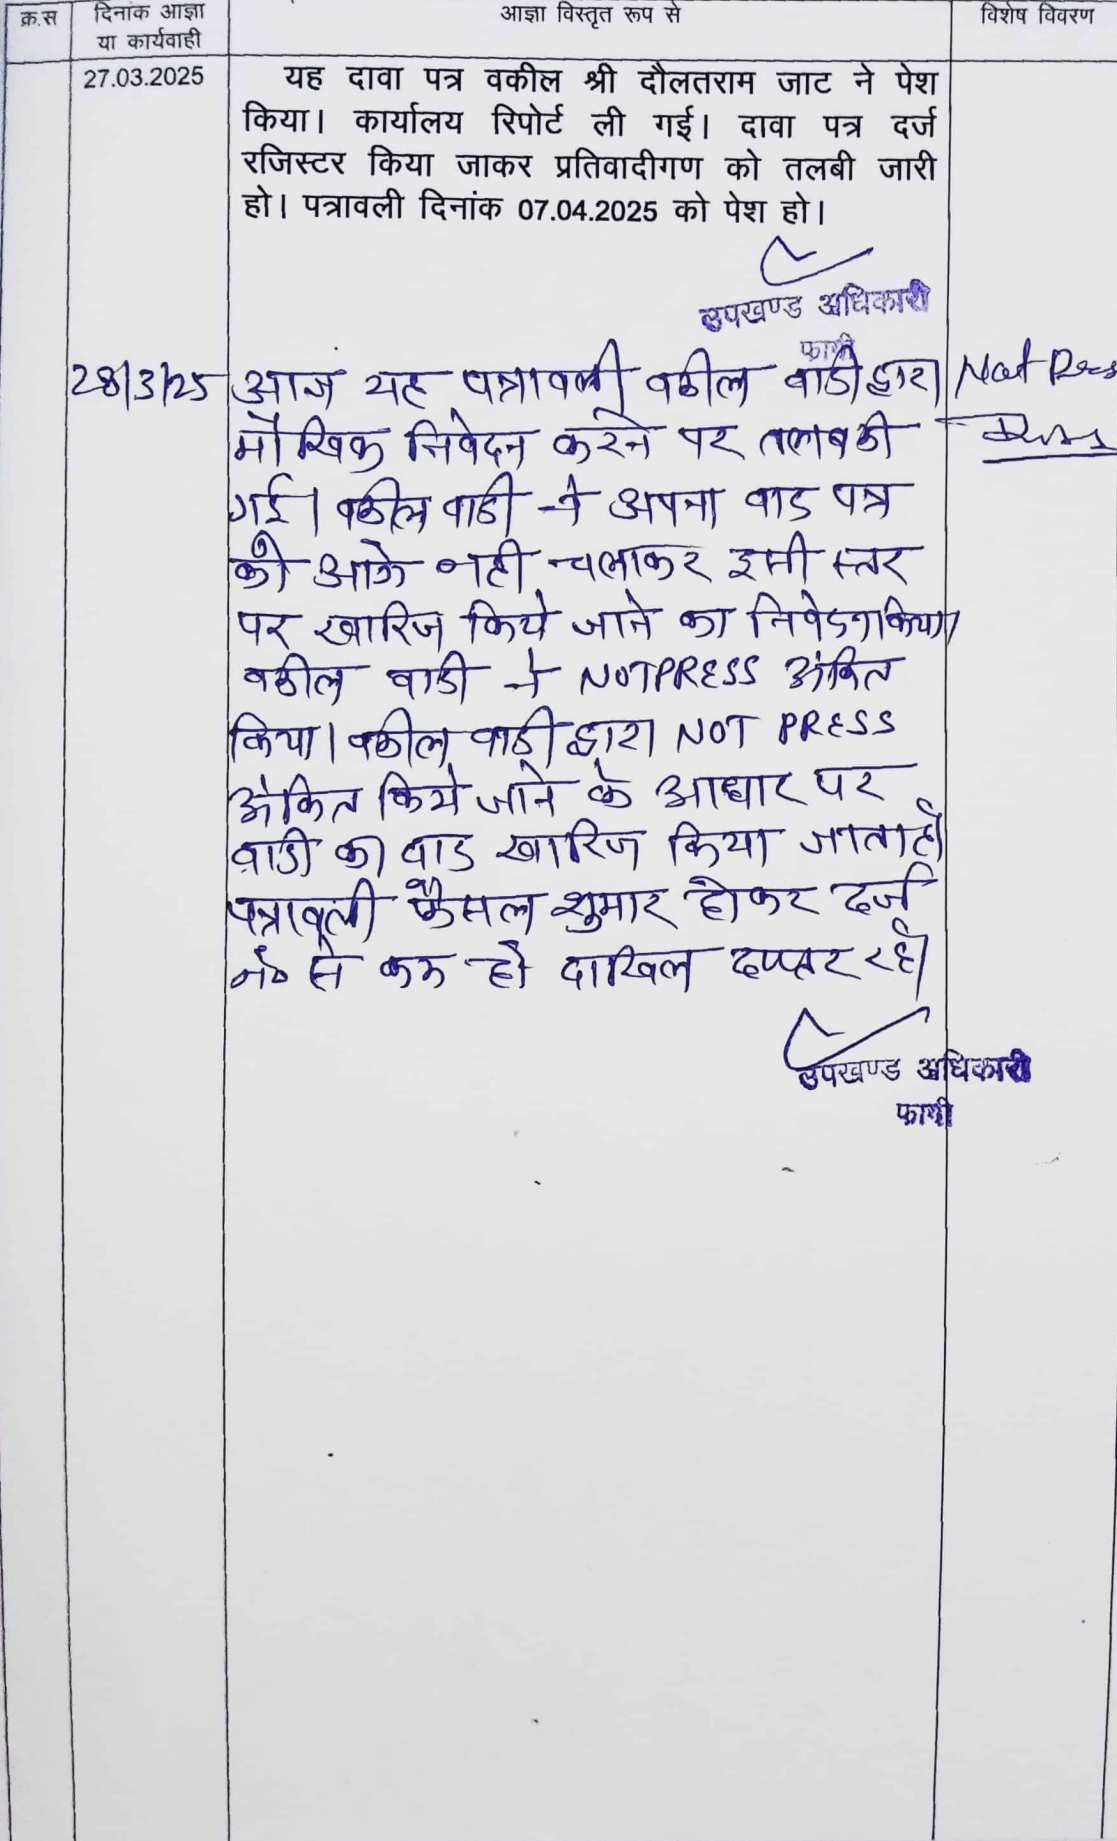 क्र.स
दिनांक आज्ञा
या कार्यवाही
आज्ञा विस्तृत रूप से
विशेष विवरण
27.03.2025
यह दावा पत्र वकील श्री दौलतराम जाट ने पेश
किया। कार्यालय रिपोर्ट ली गई। दावा पत्र दर्ज
रजिस्टर किया जाकर प्रतिवादीगण को तलबी जारी
हो। पत्रावली दिनांक 07.04.2025 को पेश हो।
उपखण्ड अधिकारी
फागी
28/3/25
आज यह पत्रावली वकील वादी द्वारा
Not Press
मौखिक निवेदन करने पर तलब की
गई। वकील वादी ने अपना वाद पत्र
को आगे नही चलाकर इसी स्तर
पर खारिज किये जाने का निवेदन किया।
वकील वादी ने NOTPRESS अंकित
किया। वकील वादी द्वारा NOT PRESS
अंकित किये जाने के आधार पर
वादी का वाद खारिज किया जाता है।
पत्रावली फैसल शुमार होकर दर्ज
नं० से कम हो दाखिल दफ्तर रहे।
उपखण्ड अधिकारी
फागी